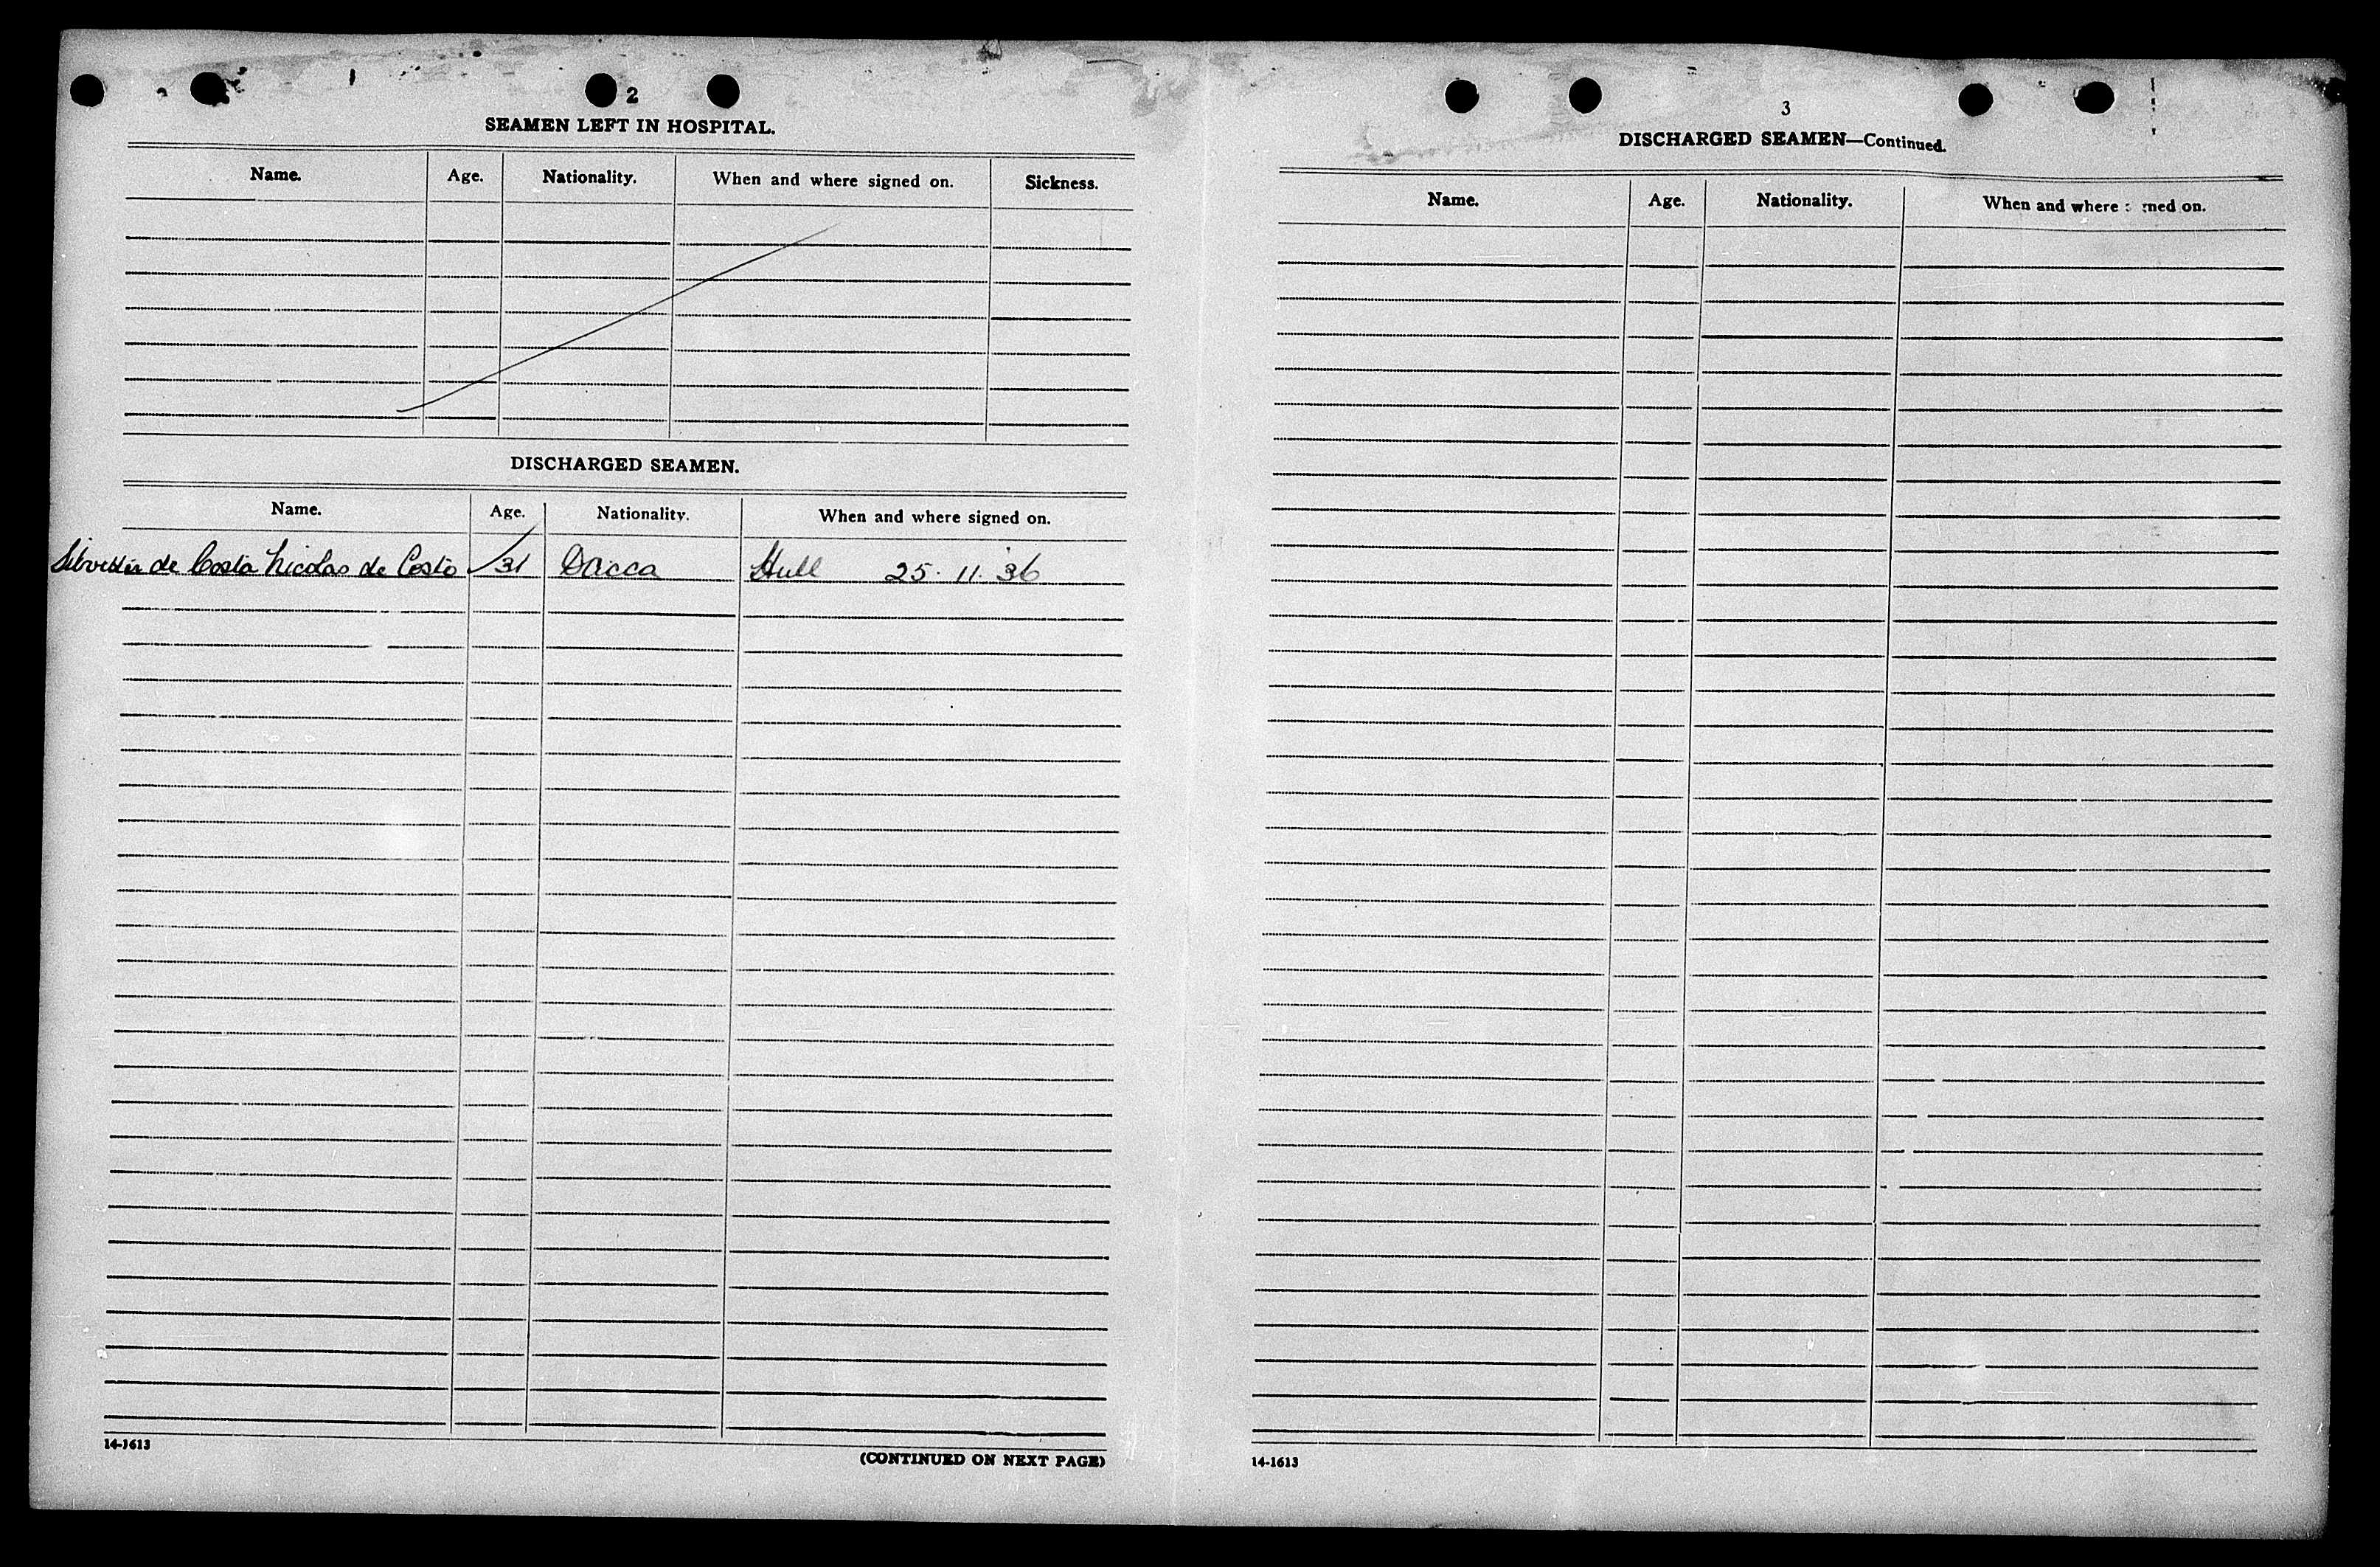 2
SEAMEN LEFT IN HOSPITAL.
Name. Age. Nationality. When and where signed on. Sickness.
DISCHARGED SEAMEN.
Name. Age. Nationality. When and where signed on.
de Costa Nicolas de Costa 31 Dacca Hull 25. 11. 36
14-1613
(CONTINUED ON NEXT PAGE)
3
DISCHARGED SEAMEN—Continued.
Name. Age. Nationality. When and where ned on.
14-1613